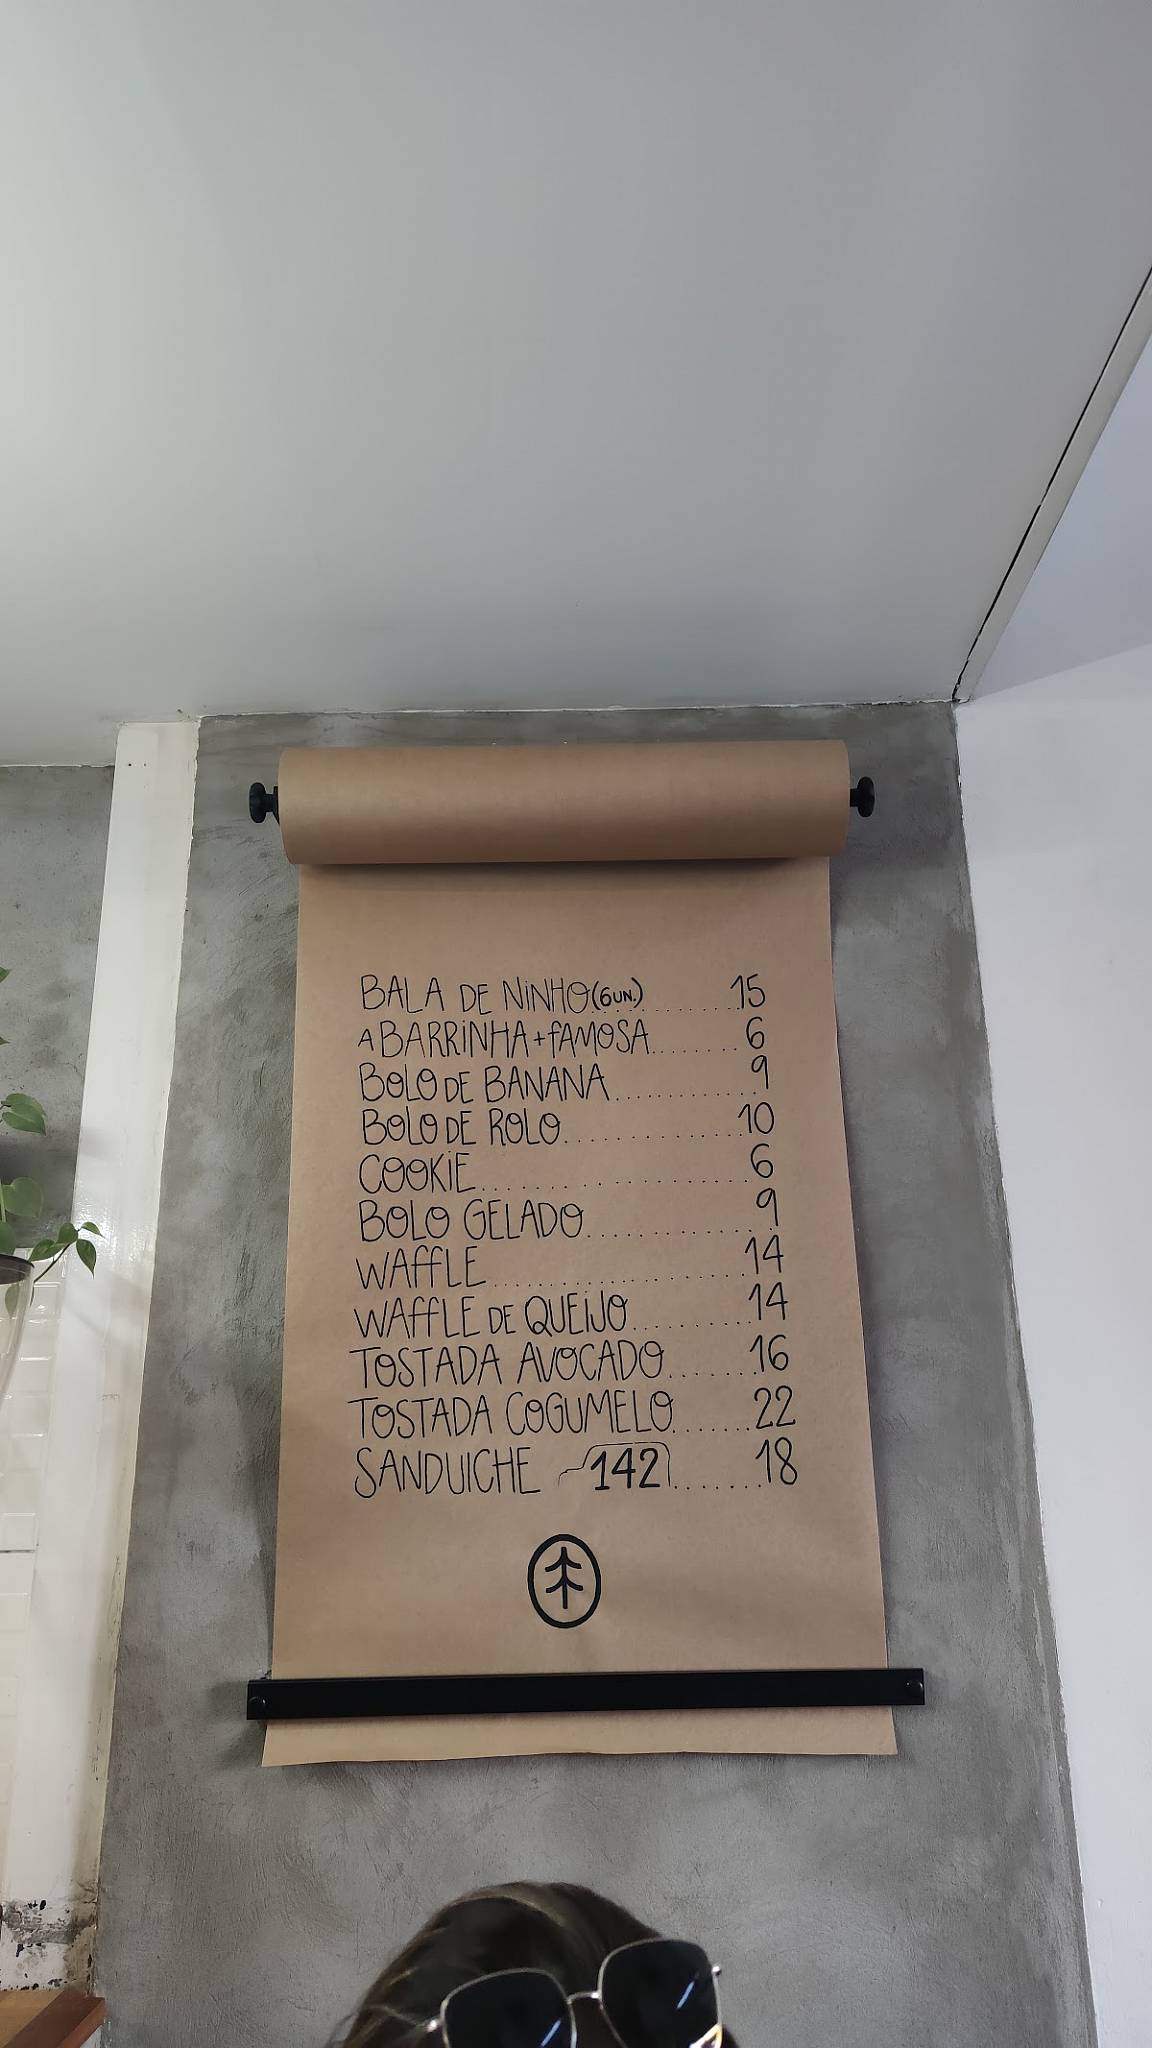 BALA DE NINHO (6UN.)..........15
A BARRINHA + FAMOSA........6
BOLO DE BANANA............9
BOLO DE ROLO................10
COOKIE......................6
BOLO GELADO..............9
WAFFLE......................14
WAFFLE DE QUEIJO..........14
TOSTADA AVOCADO.......16
TOSTADA COGUMELO.......22
SANDUICHE 142.......18